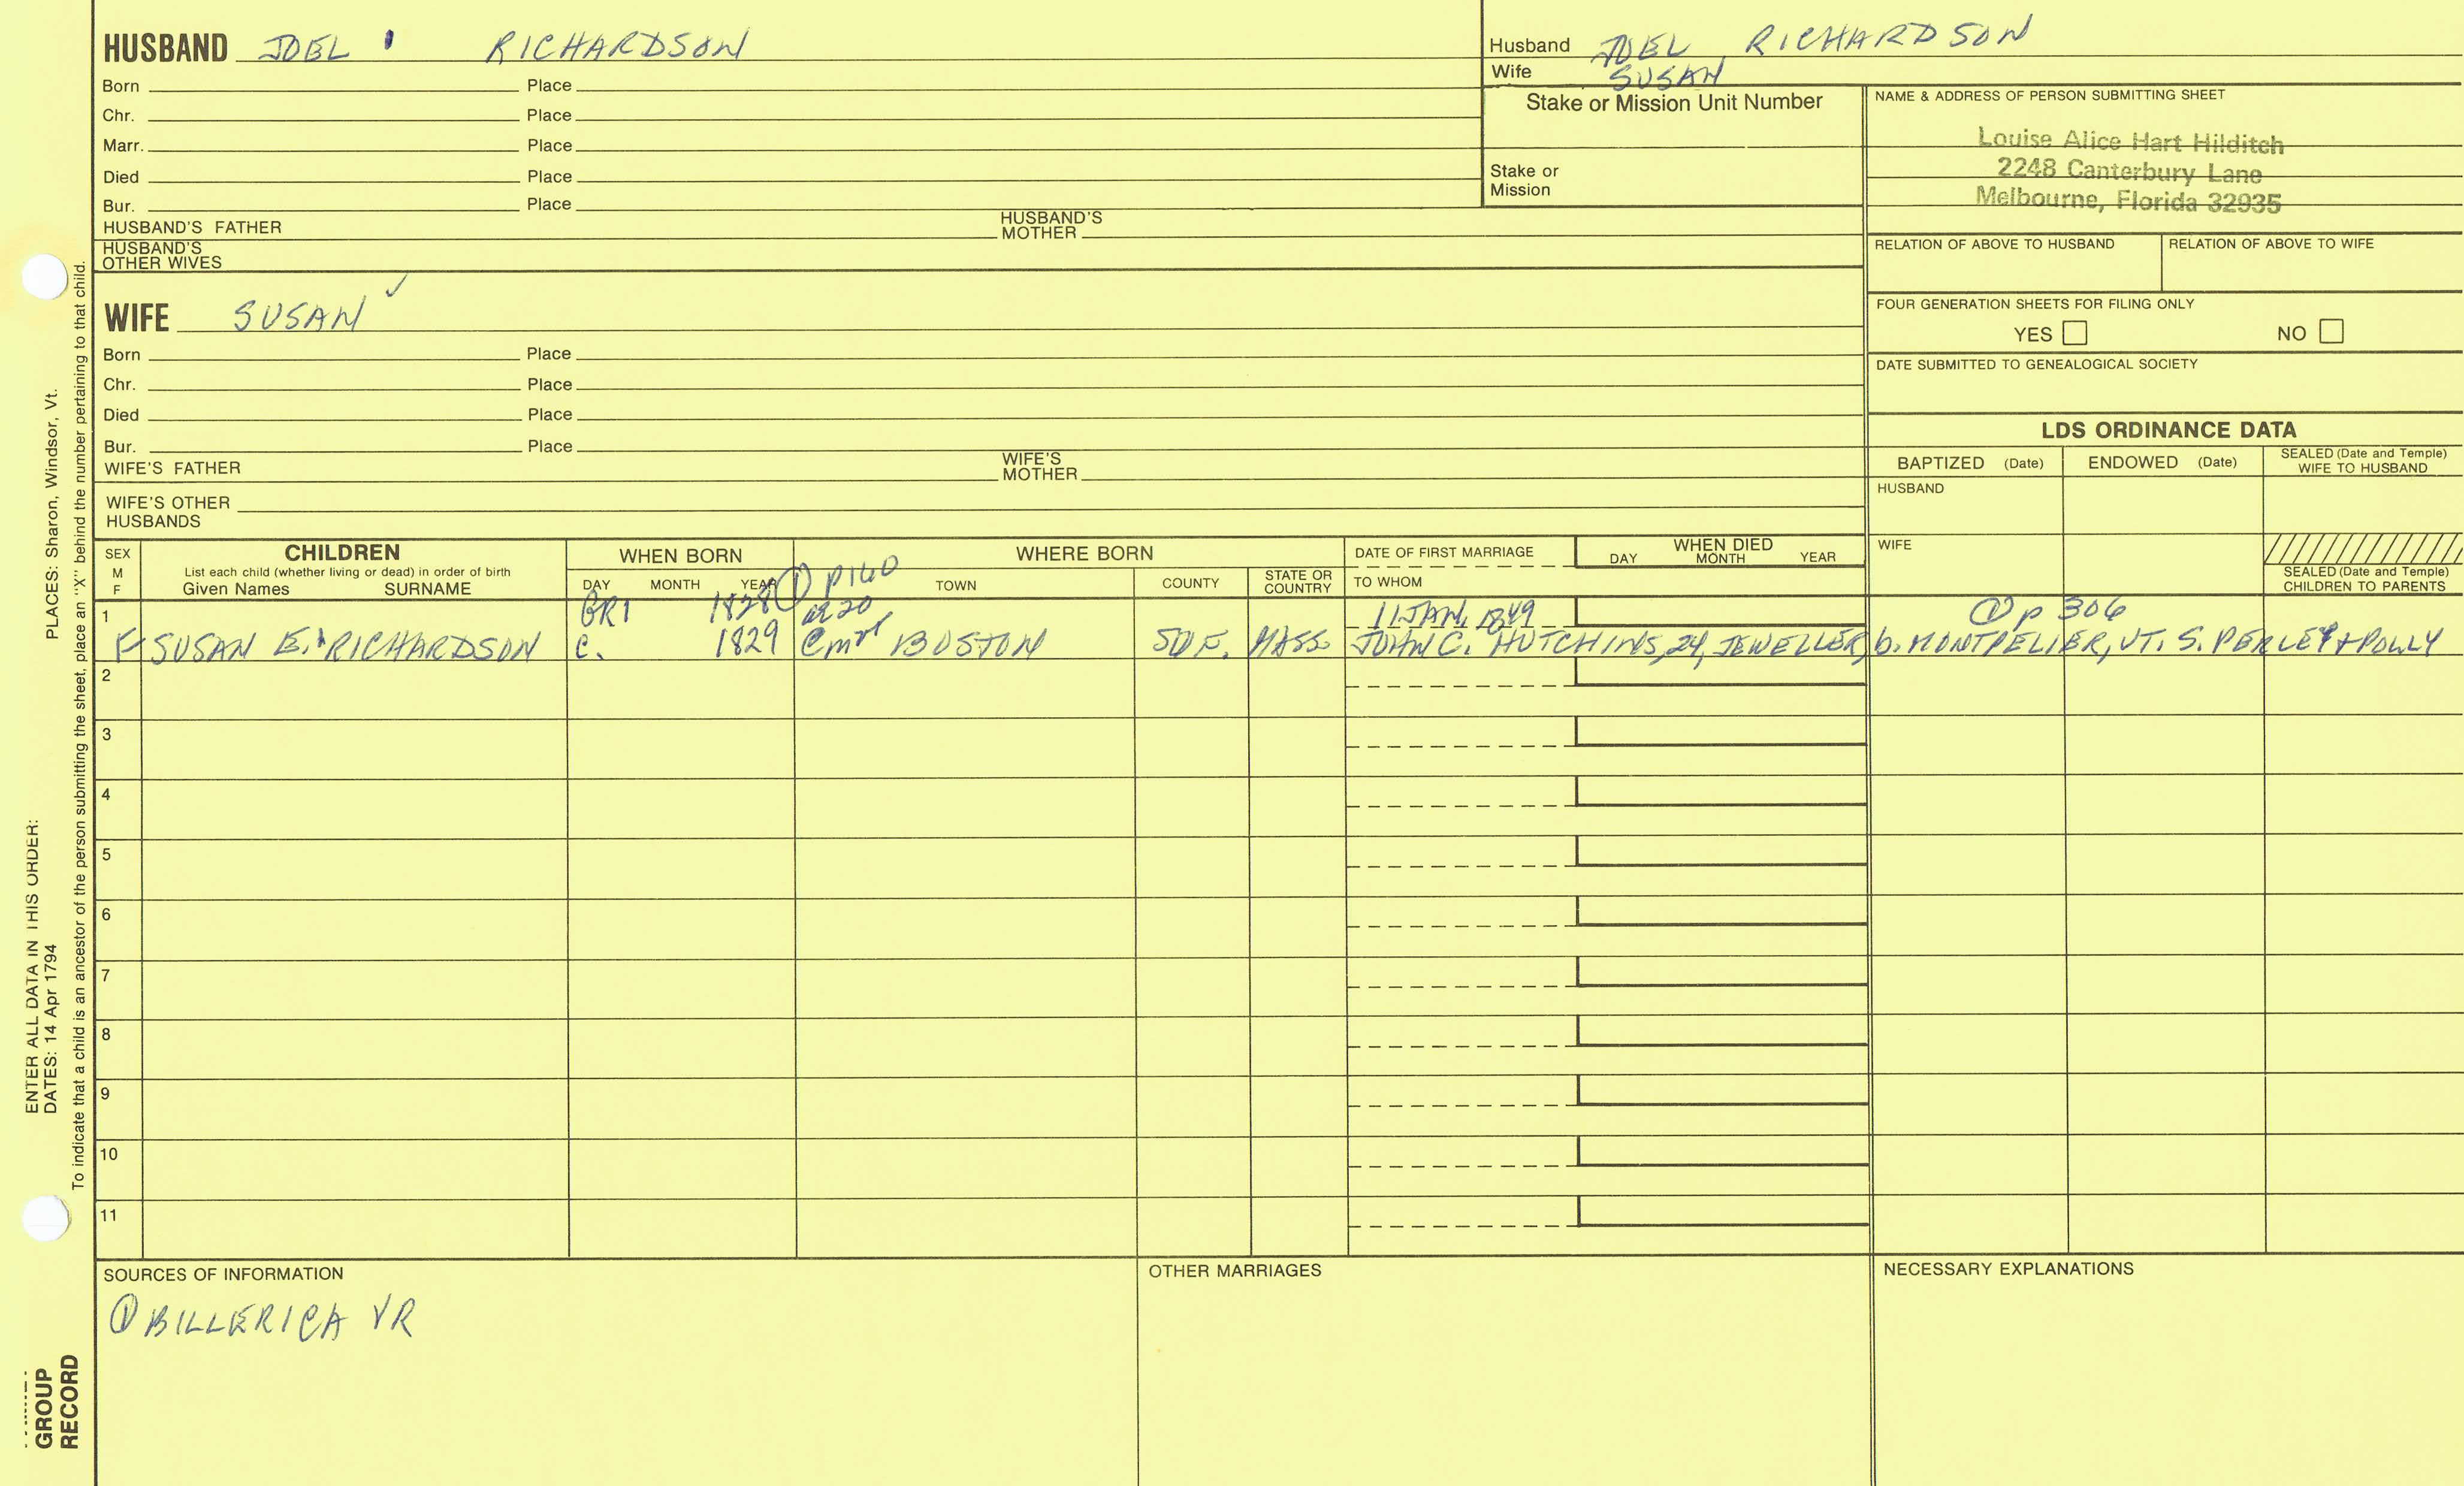 HUSBAND JOEL RICHARDSON
Born Place
Chr. Place
Marr. Place
Died Place
Bur. Place
HUSBAND'S FATHER HUSBAND'S MOTHER
HUSBAND'S OTHER WIVES
WIFE SUSAN
Born Place
Chr. Place
Died Place
Bur. Place
WIFE'S FATHER WIFE'S MOTHER
WIFE'S OTHER HUSBANDS
Husband JOEL RICHARDSON
Wife SUSAN
Stake or Mission Unit Number
Stake or Mission
NAME & ADDRESS OF PERSON SUBMITTING SHEET
Louise Alice Hart Hilditch
2248 Canterbury Lane
Melbourne, Florida 32935
RELATION OF ABOVE TO HUSBAND RELATION OF ABOVE TO WIFE
FOUR GENERATION SHEETS FOR FILING ONLY
YES NO
DATE SUBMITTED TO GENEALOGICAL SOCIETY
LDS ORDINANCE DATA
BAPTIZED (Date) ENDOWED (Date) SEALED (Date and Temple) WIFE TO HUSBAND
HUSBAND
WIFE
SEALED (Date and Temple) CHILDREN TO PARENTS
SEX M F
CHILDREN
List each child (whether living or dead) in order of birth
Given Names SURNAME
WHEN BORN
DAY MONTH YEAR
WHERE BORN
TOWN COUNTY STATE OR COUNTRY
DATE OF FIRST MARRIAGE
TO WHOM
WHEN DIED
DAY MONTH YEAR
① p160
1 GR1 1828 a20 11 JAN, 1849 ① p 306
F SUSAN E. RICHARDSON C. 1829 BOSTON SUF. MASS JOHN C. HUTCHINS, 24, JEWELLER, b. MONTPELIER, VT. S. PERLEY & POLLY
2
3
4
5
6
7
8
9
10
11
SOURCES OF INFORMATION
① BILLERICA VR
OTHER MARRIAGES
NECESSARY EXPLANATIONS
ENTER ALL DATA IN THIS ORDER:
DATES: 14 Apr 1794 PLACES: Sharon, Windsor, Vt.
To indicate that a child is an ancestor of the person submitting the sheet, place an "X" behind the number pertaining to that child.
GROUP
RECORD